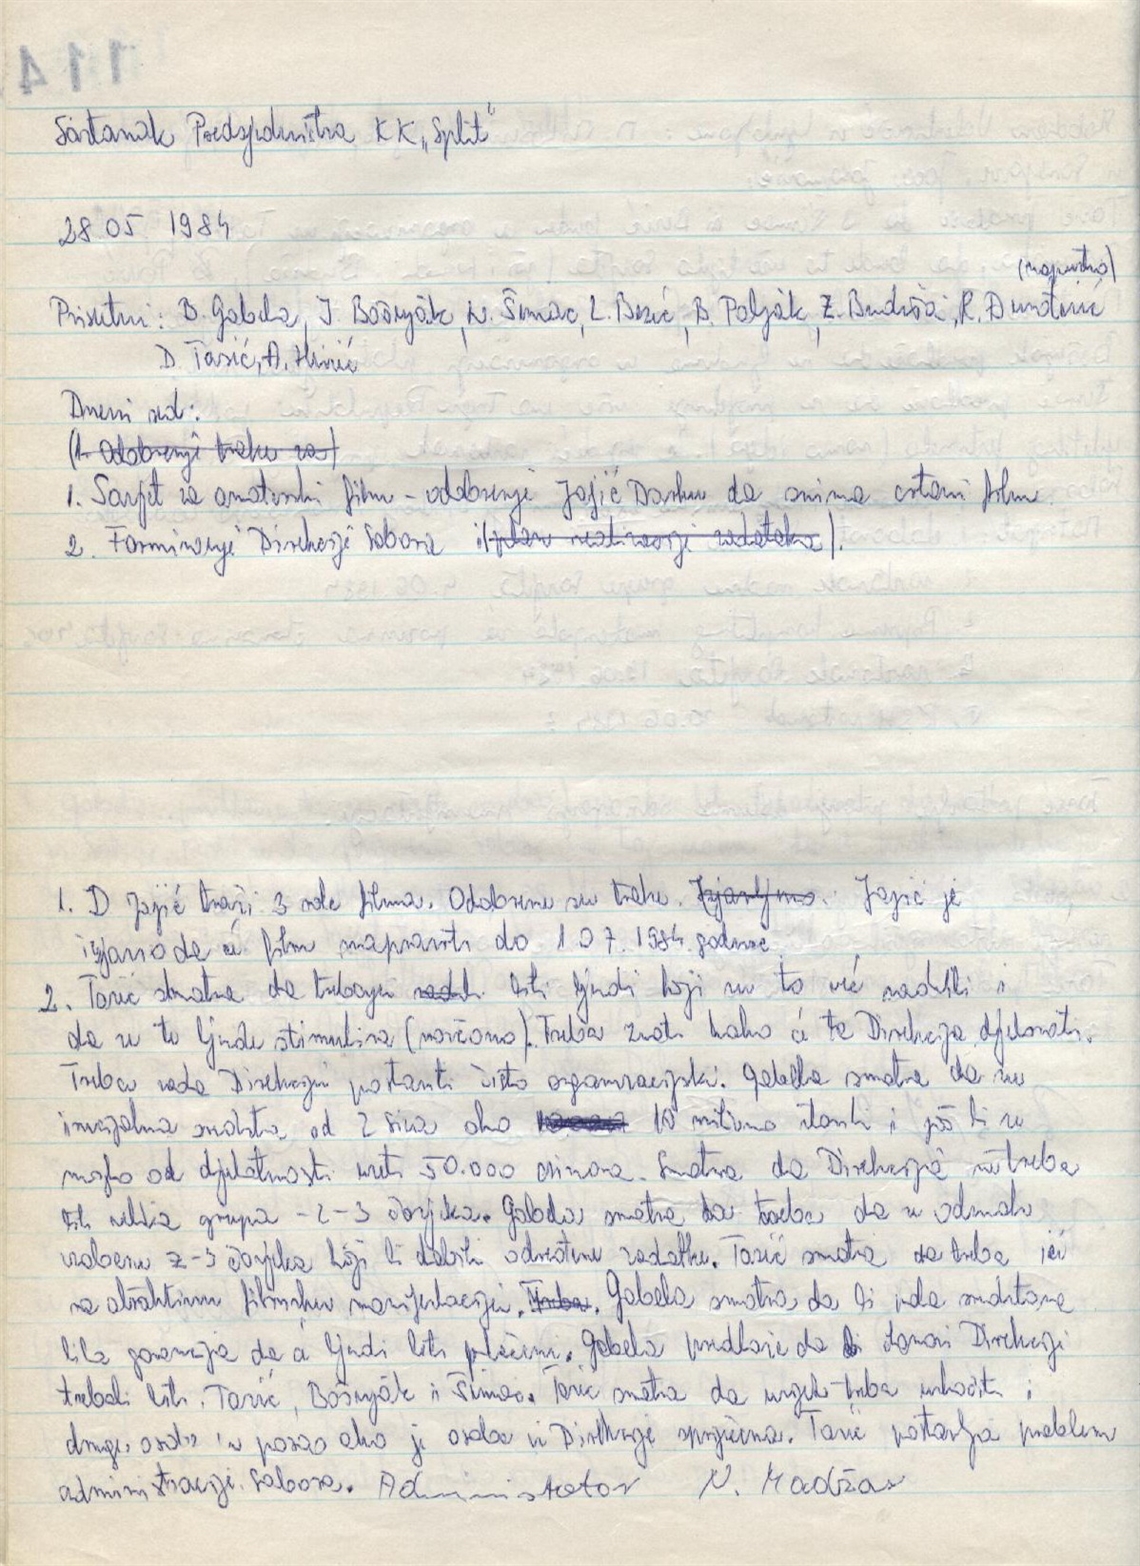 114
Sastanak Predsjedništva KK "Split"
28 05 1984
(naputno)
Prisutni: B. Gabela, J. Bošnjak, N. Šimac, L. Bezić, B. Poljak, Z. Budiša, R. Dunatović
D. Tasić, A.
Dnevni red:
(1. Odobrenje trake za)
1. Savjet za amaterski film - odobrenje Jajić Darku da snima crtani film
2. Formiranje Direkcije Sabora i (plan realizacije zadataka).
1. D Jajić traži 3 role filma. Odobrene su trake. Izjavljuno. Jajić je
izjavio da će film napraviti do 1 07. 1984. godine
2. Tasić smatra da trebaju radit. biti ljudi koji su to već radili i
da se te ljude stimulira (novčano). Treba znati kako će ta Direkcija djelovati.
Treba sada Direkciju postaviti čisto organizacijski. Gabela smatra da su
inicijalna sredstva od 2 Siza oko 10 miliona starih i još bi se
moglo od djelatnosti uzeti 50.000 dinara. Smatra da Direkcija ne treba
biti velika grupa - 2-3 čovjeka. Gabela smatra da treba da se odmah
izaberu 2-3 čovjeka koji bi dobili određene zadatke. Tasić smatra da treba ići
na atraktivnu filmsku manifestaciju. Treba. Gabela smatra da bi ta sredstva
bila garancija da će ljudi biti plaćeni. Gabela predlaže da bi članovi Direkcije
trebali biti. Tasić, Bošnjak i Šimac. Tasić smatra da uvijek treba uskočiti i
druga osoba u posao ako je osoba iz Direkcije spriječena. Tasić postavlja problem
administracije Sabora. Administrator N. Madžar